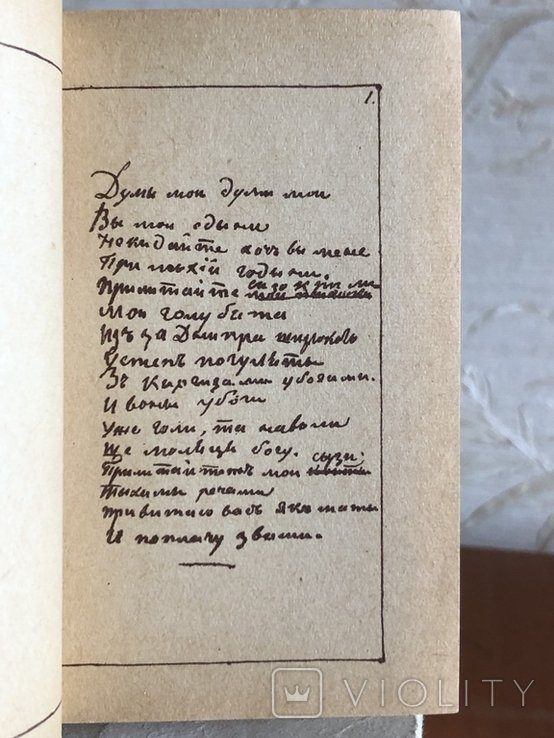 1.
Думы мои думы мои
Вы мои едыни
Некидайте хочь вы мене
При лыхій годыни.
Прилитайте сизокрили
Мои голубята
Изъ за Днипра широкого
Устепъ погуляты
Зъ Киргизами убогими.
И вони убоги
Уже голи, та наволи
Ще молыця богу. сызи,
Прилитайтежъ мои
Тыхими речами
Привитаю васъ якъ маты
И поплачу звами.
VIOLITY